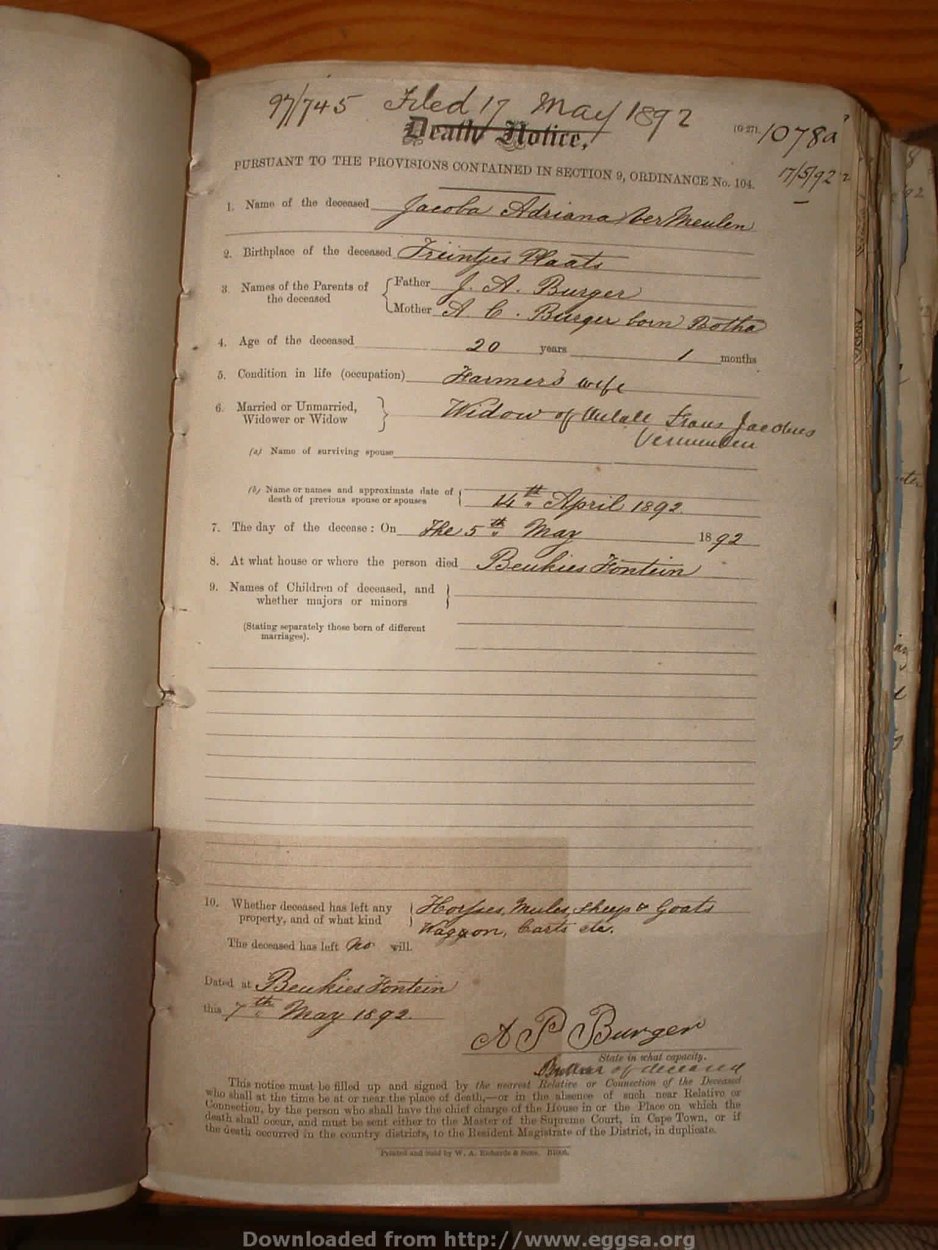 97/745 Filed 17 May 1892
Death Notice, (G 271. 1078a
17/5/92
PURSUANT TO THE PROVISIONS CONTAINED IN SECTION 9, ORDINANCE No. 104.
1. Name of the deceased Jacoba Adriana Ver Meulen
2. Birthplace of the deceased Fruintjes Plaats
3 Names of the Parents of the deceased { Father J. A. Burger
Mother A C. Burger born Botha
4. Age of the deceased 20 years 1 months
5. Condition in life (occupation) Farmers wife
6. Married or Unmarried, Widower or Widow } Widow of Frans Jacobus
Vermeulen
(a) Name of surviving spouse
(b) Name or names and approximate date of death of previous spouse or spouses { 14th April 1892
7. The day of the decease: On The 5th May 1892
8. At what house or where the person died Beukies Fontein
9. Names of Children of deceased, and whether majors or minors }
(Stating separately those born of different marriages).
10. Whether deceased has left any property, and of what kind } Horses, Mules, Sheep & Goats
Waggon, Carts etc.
The deceased has left no will.
Dated at Beukies Fontein
this 7th May 1892.
A P Burger
State in what capacity.
Brother of deceased
This notice must be filled up and signed by the nearest Relative or Connection of the Deceased
who shall at the time be at or near the place of death,—or in the absence of such near Relative or
Connection, by the person who shall have the chief charge of the House in or the Place on which the
death shall occur, and must be sent either to the Master of the Supreme Court, in Cape Town, or if
the death occurred in the country districts, to the Resident Magistrate of the District, in duplicate.
Printed and sold by W. A. Richards & Sons.
Downloaded from http://www.eggsa.org